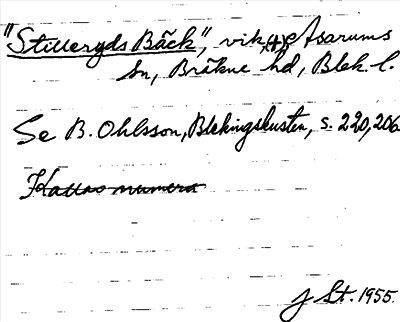 "Stilleryds Bäck", vik, (+) i Asarums
sn, Bräkne hd, Blek. l.
Se B. Ohlsson, Blekingskusten, s. 220, 206
Kallas numera
J St. 1955.